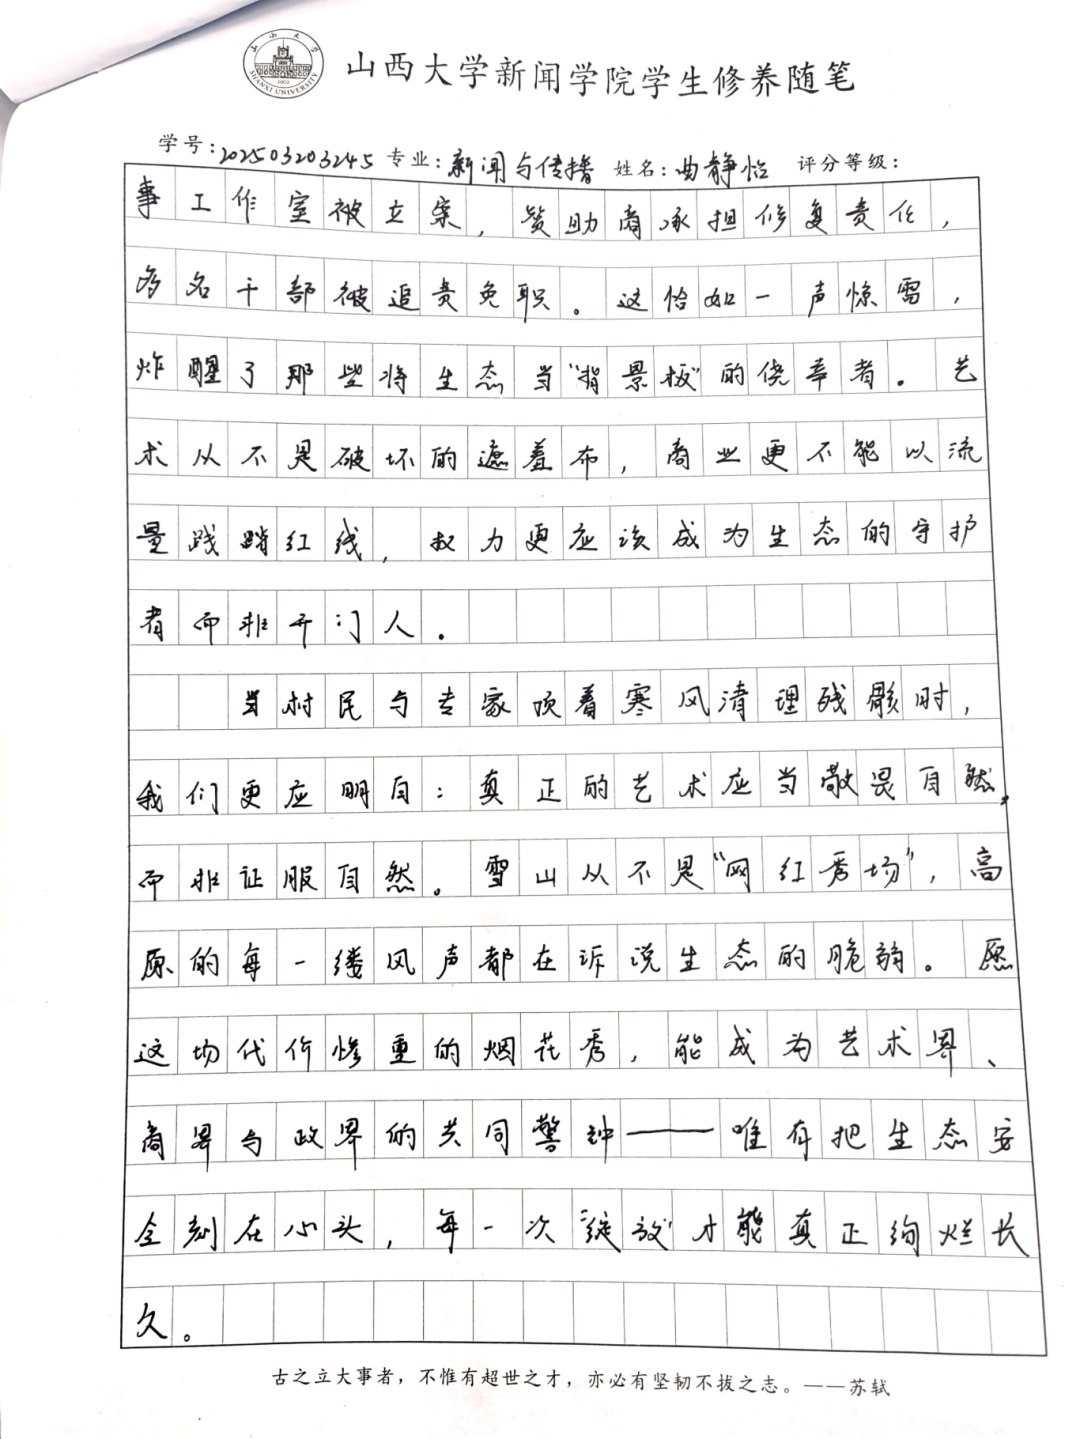 山西大学
SHANXI UNIVERSITY
1902
山西大学新闻学院学生修养随笔
学号：202503203245 专业：新闻与传播 姓名：曲静怡 评分等级：
事工作室被立案，赞助商承担修复责任，
多名干部被追责免职。这恰如一声惊雷，
炸醒了那些将生态当“背景板”的侥幸者。艺
术从不是破坏的遮羞布，商业更不能以流
量践踏红线，权力更应该成为生态的守护
者而非开门人。
当村民与专家顶着寒风清理残骸时，
我们更应明白：真正的艺术应当敬畏自然，
而非证服自然。雪山从不是“网红秀场”，高
原的每一缕风声都在诉说生态的脆弱。愿
这场代价惨重的烟花秀，能成为艺术界、
商界与政界的共同警钟——唯有把生态安
全刻在心头，每一次“绽放”才能真正绚烂长
久。
古之立大事者，不惟有超世之才，亦必有坚韧不拔之志。——苏轼